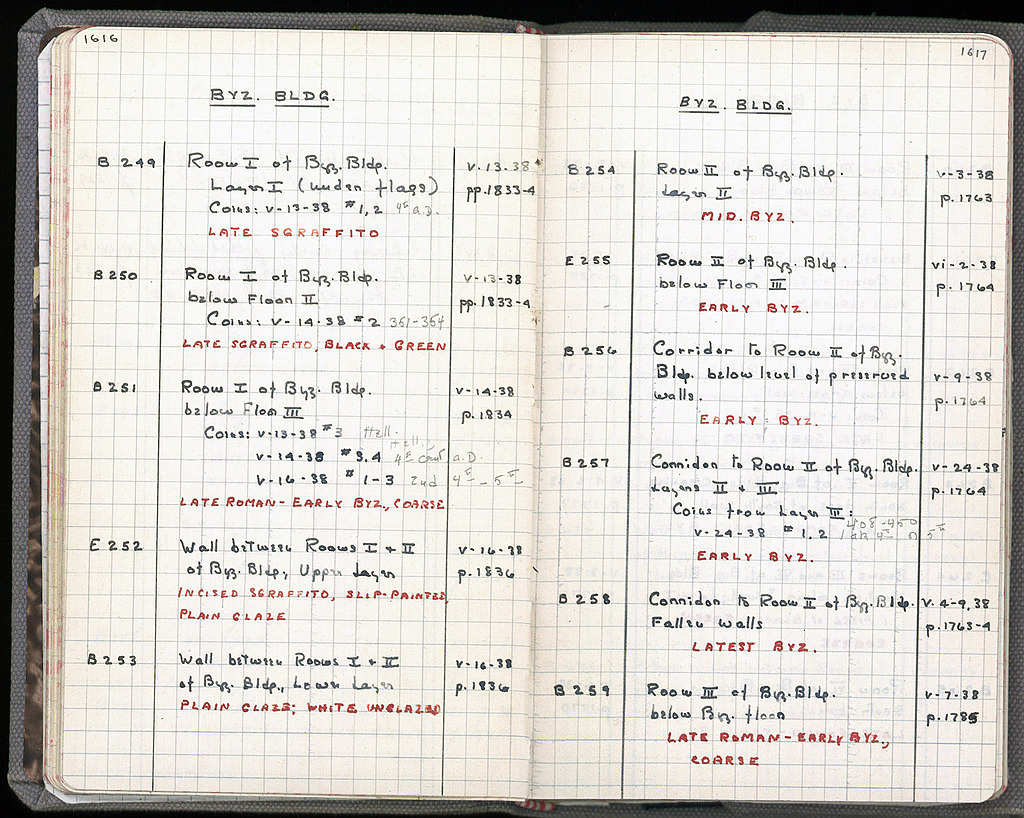 1616
BYZ. BLDG.
B 249 Room I of Byz. Bldg. V-13-38
Layer I (under flags) pp.1833-4
Coins: V-13-38 #1,2 4th a.D.
LATE SGRAFFITO
B 250 Room I of Byz. Bldg. V-13-38
below Floor II pp.1833-4
Coins: V-14-38 #2 351-354
LATE SGRAFFITO, BLACK + GREEN
B 251 Room I of Byz. Bldg. V-14-38
below Floor III p.1834
Coins: V-13-38 #3 Hell.
Hell.
V-14-38 #3,4 4th cent a.D.
V-16-38 #1-3 2nd 4th-5th
LATE ROMAN - EARLY BYZ., COARSE
E 252 Wall between Rooms I + II V-16-38
of Byz. Bldg., Upper Layer p.1836
INCISED SGRAFFITO, SLIP-PAINTED,
PLAIN GLAZE
B 253 Wall between Rooms I + II V-16-38
of Byz. Bldg., Lower Layer p.1836
PLAIN GLAZE; WHITE UNGLAZED
1617
BYZ. BLDG.
B 254 Room II of Byz. Bldg. V-3-38
Layer II p.1763
MID. BYZ.
E 255 Room II of Byz. Bldg. VI-2-38
below Floor III p.1764
EARLY BYZ.
B 256 Corridor to Room II of Byz.
Bldg. below level of preserved V-9-38
walls. p.1764
EARLY BYZ.
B 257 Corridor to Room II of Byz. Bldg. V-24-38
Layers II + III p.1764
Coins from Layer III:
408-450
V-24-38 #1,2 4th 5th
EARLY BYZ.
B 258 Corridor to Room II of Byz. Bldg. V.4-9,38
Fallen walls p.1763-4
LATEST BYZ.
B 259 Room III of Byz. Bldg. V-7-38
below Byz. floor p.1785
LATE ROMAN - EARLY BYZ.,
COARSE